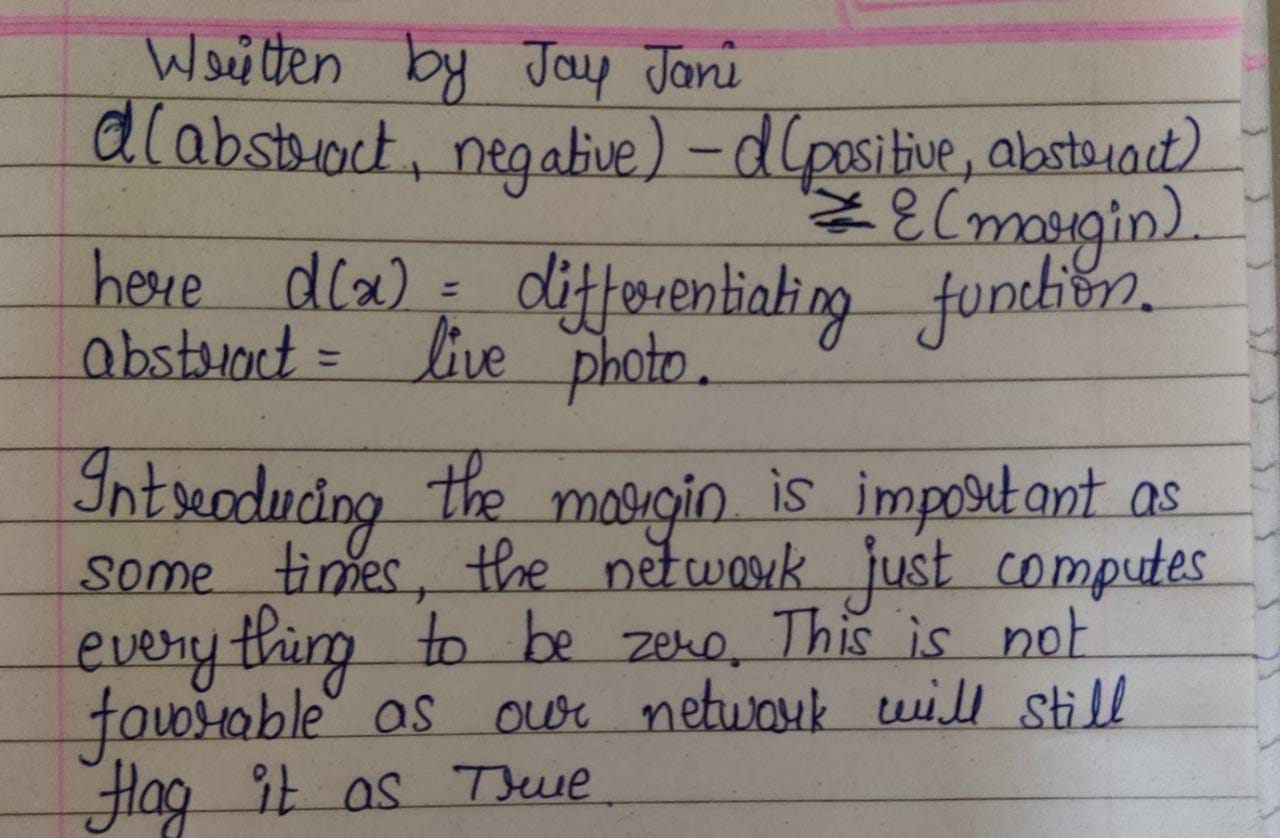 Written by Jay Jani
d(abstract, negative) - d(positive, abstract)
≥ ε(margin).
here d(x) = differentiating function.
abstract = live photo.
Introducing the margin is important as
some times, the network just computes
everything to be zero. This is not
favorable as our network will still
flag it as True.